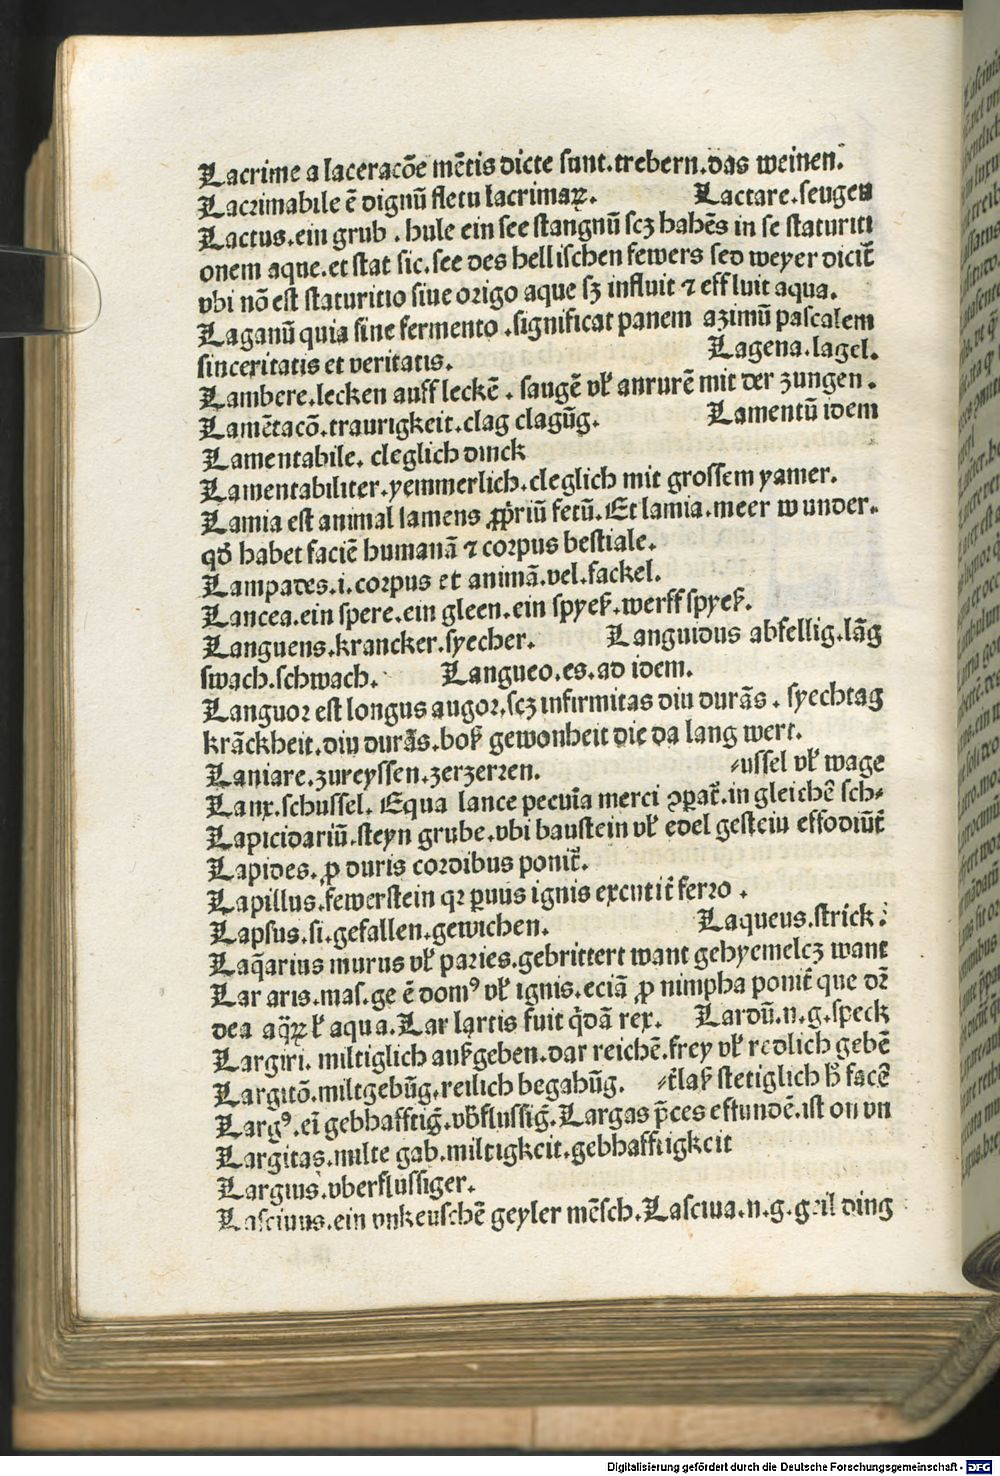 Lacrime a laceracōe mētis dicte sunt.trehern.das weinen.
Lacrimabile ē dignū fletu lacrimaꝝ. Lactare.seugen
Lactus.ein grub . hule ein see stangnū scȝ habēs in se staturiti
onem aque.et stat sic.see des hellischen fewers sed weyer dicit̄
vbi nō est staturitio siue origo aque sȝ influit ⁊ effluit aqua.
Laganū quia sine fermento .significat panem azimū pascalem
sinceritatis et veritatis. Lagena.lagel.
Lambere.lecken auff leckē . saugē vł anrurē mit der zungen .
Lamētacō.traurigkeit.clag clagūg. Lamentū idem
Lamentabile. cleglich dinck
Lamentabiliter.yemmerlich.cleglich mit grossem yamer.
Lamia est animal lamens ꝓpriū fetū.Et lamia.meer wunder.
qđ habet faciē humanā ⁊ corpus bestiale.
Lampades.i.corpus et animā.vel.fackel.
Lancea.ein spere.ein gleen.ein spyeß.werff spyeß.
Languens.krancker.syecher. Languidus abfellig.lāg
swach.schwach. Langueo.es.ad idem.
Languor est longus augor.scȝ infirmitas diu durās . syechtag
krāckheit.diu durās.boß gewonheit die da lang wert.
Laniare.zureyssen.zerzerren. ⸗ussel vł wage
Lanx.schussel. Equa lance pecuīa merci ꝯparat̄.in gleichē sch⸗
Lapicidariū.steyn grube.vbi baustein vł edel gestein effodiūt̄
Lapides. ꝓ duris cordibus ponit̄.
Lapillus.fewerstein qꝛ ꝑuus ignis excutit̄ ferro .
Lapsus.si.gefallen.gewichen. Laqueus.strick.
Laq̄arius murus vł paries.gebrittert want gehyemelcȝ want
Lar aris.mas.ge ē domꝰ vł ignis.eciā ꝓ nimpha ponit̄ que dꝛ̄
dea aq̄ꝝ ł aqua.Lar lartis fuit q̇dā rex. Lardū.n.g.speck
Largiri. miltiglich außgeben.dar reichē.frey vł redlich gebē
Largitō.miltgebūg.reilich begabūg. ⸗t̄laß stetiglich ħ facē
Largꝰ.eī gebhafftiḡ.vb̄flussiḡ.Largas p̄ces effundē.ist on vn
Largitas.milte gab.miltigkeit.gebhafftigkeit
Largius.vberflussiger.
Lasciuus.ein vnkeuschē geyler mēsch.Lasciua.n.g.geil ding
Digitalisierung gefördert durch die Deutsche Forschungsgemeinschaft - DFG